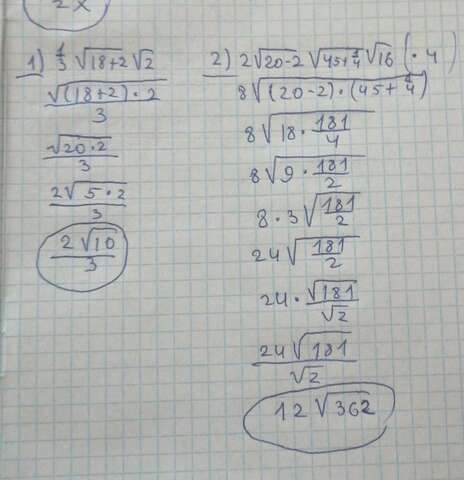 2x
1) 1/3 √(18+2) √2
√((18+2)·2)/3
√(20·2)/3
2√(5·2)/3
2√10/3
2) 2√(20-2) √(45+1/4) √16 (·4)
8√((20-2)·(45+1/4))
8√(18·181/4)
8√(9·181/2)
8·3√(181/2)
24√(181/2)
24·√181/√2
24√181/√2
12√362